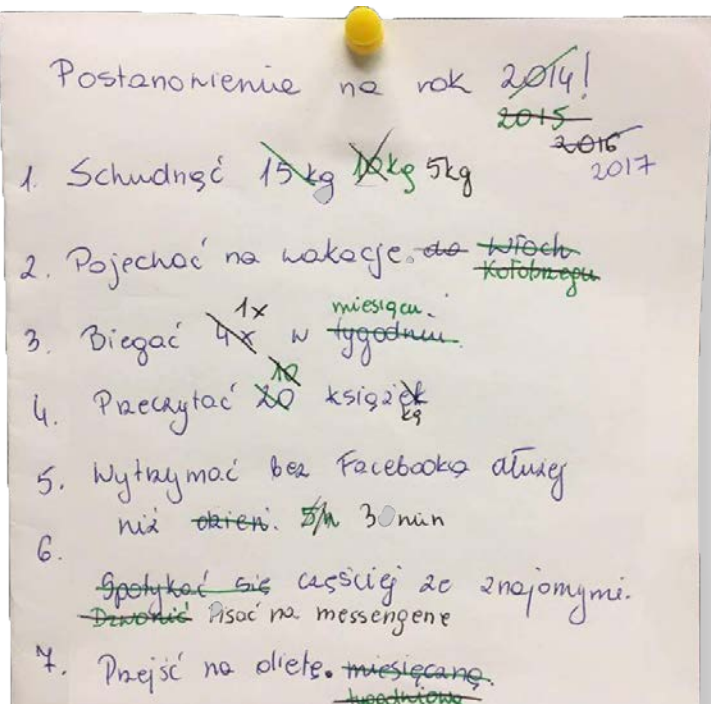 Postanowienie na rok 2014!
2015
2016
2017
1. Schudnąć 15 kg 10kg 5kg
2. Pojechać na wakacje. do Włoch
Kołobrzegu
1x miesiącu.
3. Biegać 4x w tygodniu.
10
4. Przeczytać 20 książek
kę
5. Wytrzymać bez Facebooka dłużej
niż dzień. 5h 30min
6.
Spotykać się częściej ze znajomymi.
Dzwonić Pisać na messengerze
7. Przejść na dietę. miesięczną.
tygodniową